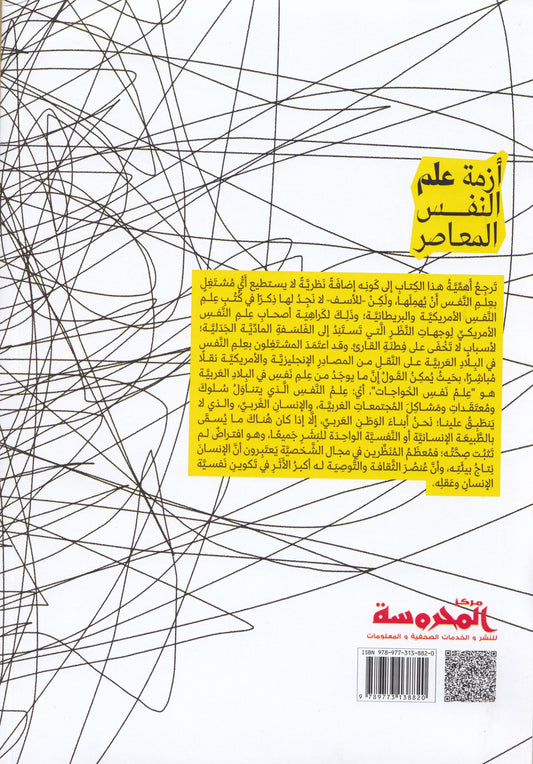 أزمة علم
النفس
المعاصر
تَرجِعُ أهمِّيَّةُ هذا الكِتابِ إلى كَونِه إضافَةً نَظريَّةً لا يستطيع أيُّ مُشتَغِلٍ
بعِلمِ النَّفْس أنْ يُهمِلَها، ولَكِنْ -للأسف- لا نَجِدُ لها ذِكرًا في كُتُب عِلمِ
النَّفْسِ الأمريكيَّةِ والبريطانيَّة؛ وذَلِكَ لكَراهِيَة أصحابِ عِلمِ النَّفْسِ
الأمريكيِّ لوِجهاتِ النَّظَرِ الَّتي تَستَنِدُ إلى الفَلسَفةِ المادِّيَّة الجَدَليَّة؛
لأسبابٍ لا تَخْفى على فِطنَةِ القارئ. وقد اعتَمَدَ المشتغِلون بعِلمِ النَّفْس
في البِلادِ العَرَبيَّةِ على النَّقلِ من المصادِرِ الإنجليزيَّةِ والأمريكيَّة نقلًا
مُباشِرًا، بحَيثُ يُمكِنُ القَولُ إنَّ ما يوجَدُ من عِلمِ نَفسٍ في البِلادِ العَرَبيَّةِ
هو "عِلمُ نَفْسِ الخَواجات"، أي: عِلمُ النَّفْسِ الَّذي يَتناوَلُ سُلوكَ
ومُعتَقَداتِ ومَشاكِلَ المُجتمعاتِ الغربيَّة، والإنسانِ الغَربيّ، والذي لا
يَنطَبِقُ علينا؛ نَحنُ أبناءَ الوَطَنِ العَرَبيّ، إلَّا إذا كان هُناكَ ما يُسمَّى
بالطَّبيعَةِ الإنسانيَّة أو النَّفْسيَّةِ الواحِدَة للبَشَرِ جَميعًا، وهو افتراضٌ لم
تَثبُت صِحَّتُه؛ فمُعظَمُ المُنَظِّرين في مجال الشَّخصيَّة يَعتَبِرون أنَّ الإنسانَ
نِتاجُ بيئَتِه، وأنَّ عُنصُرَ الثَّقافَة والتَّوصِيَة له أكبرُ الأثَرِ في تَكوينِ نَفسيَّة
الإنسانِ وعَقلِه.
مركز
المحروسة
للنشر و الخدمات الصحفية و المعلومات
ISBN 978-977-313-882-0
9 789773 138820